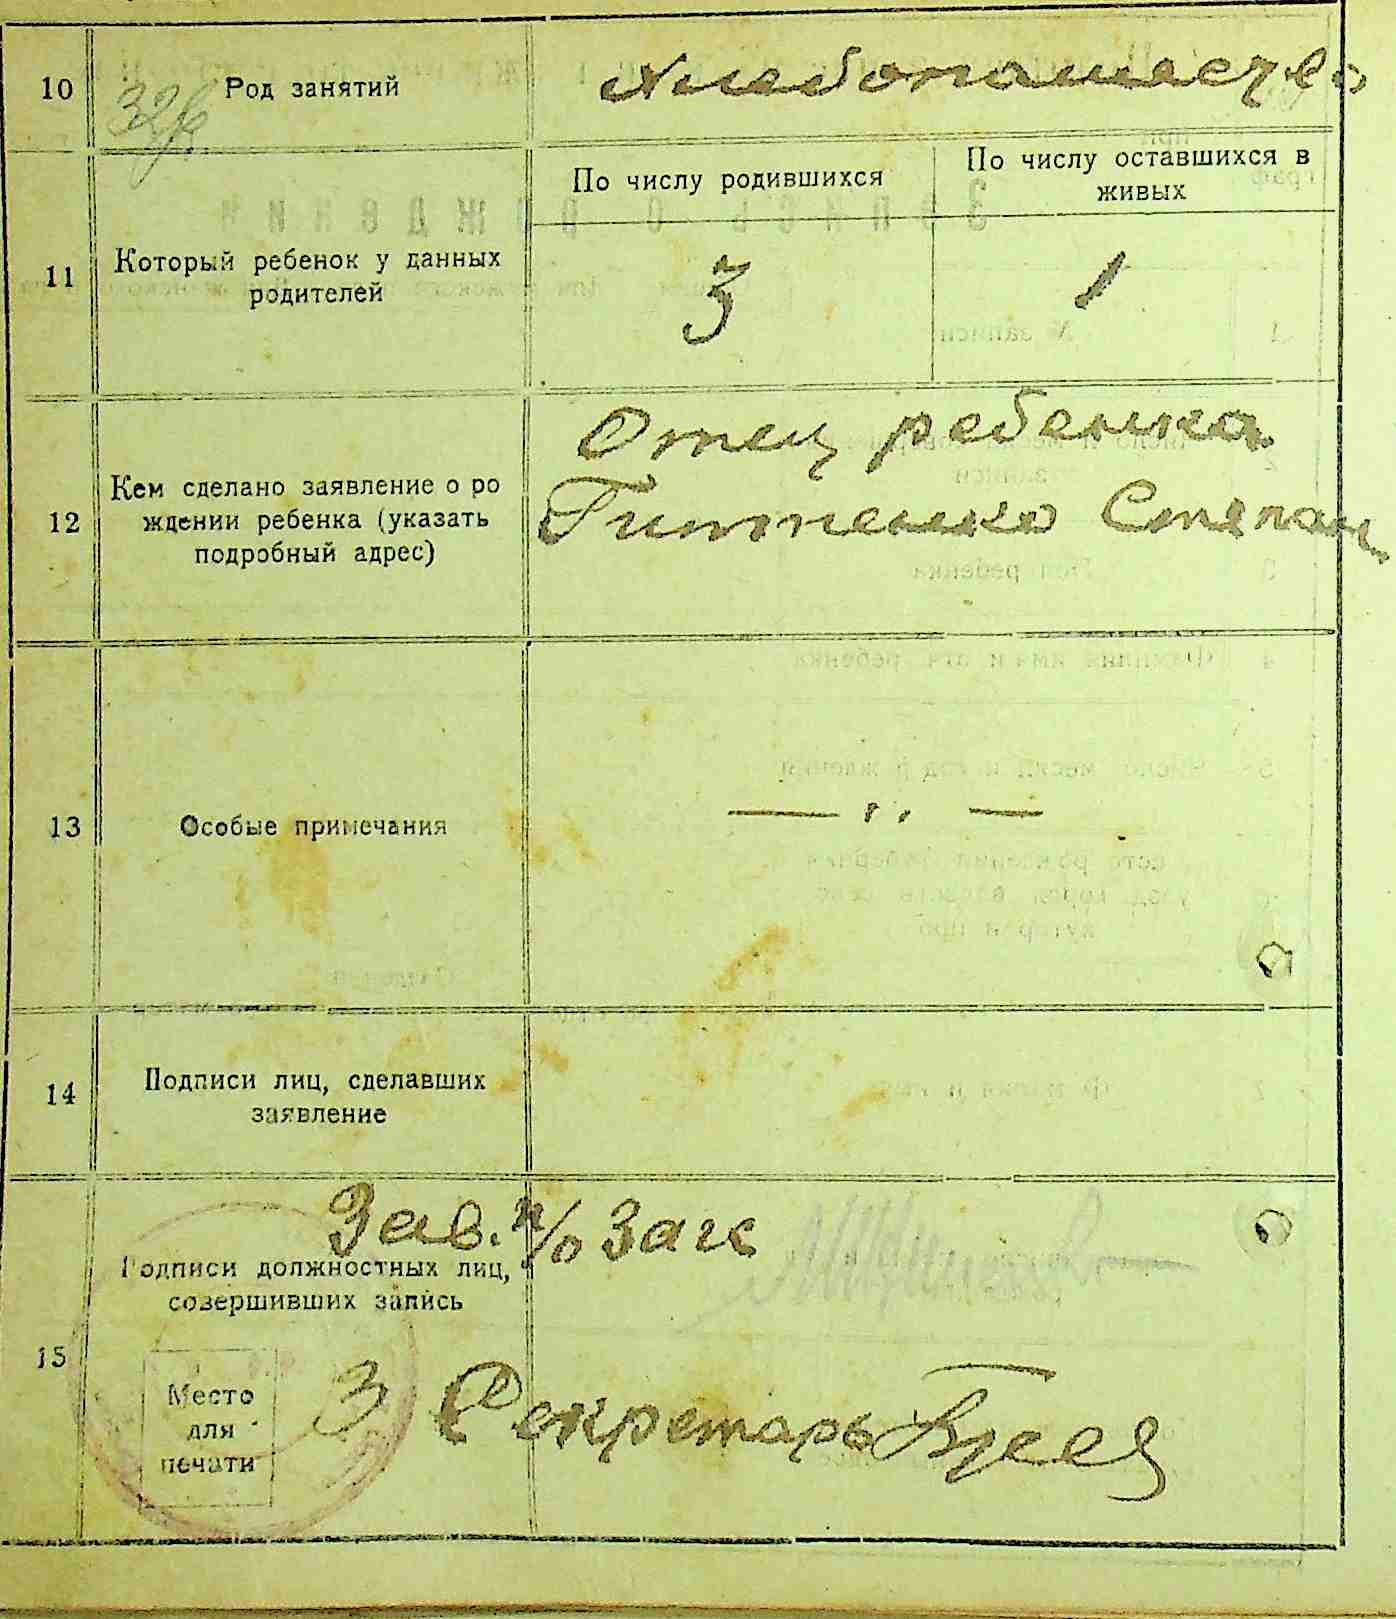 10 Род занятий Хлебопашество
По числу родившихся
По числу оставшихся в
живых
11 Который ребенок у данных
родителей
3 1
Отец ребенка
12 Кем сделано заявление о ро
ждении ребенка (указать
подробный адрес)
Степан
13 Особые примечания
— ,, —
14 Подписи лиц, сделавших
заявление
Зав. п/о Загс
15 Подписи должностных лиц,
совершивших запись
Место
для
печати
З Секретарь